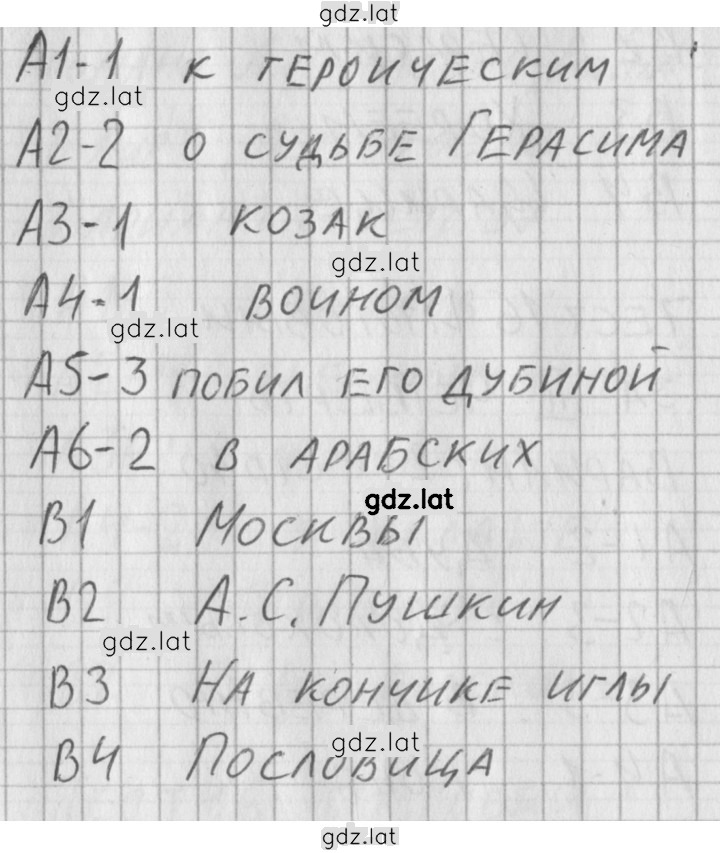 gdz.lat
А1-1 к героическим
gdz.lat
А2-2 о судьбе Герасима
А3-1 козак
gdz.lat
А4-1 воином
gdz.lat
А5-3 побил его дубиной
А6-2 в арабских
gdz.lat
В1 Москвы
В2 А.С. Пушкин
gdz.lat
В3 На кончике иглы
gdz.lat
В4 Пословица
gdz.lat